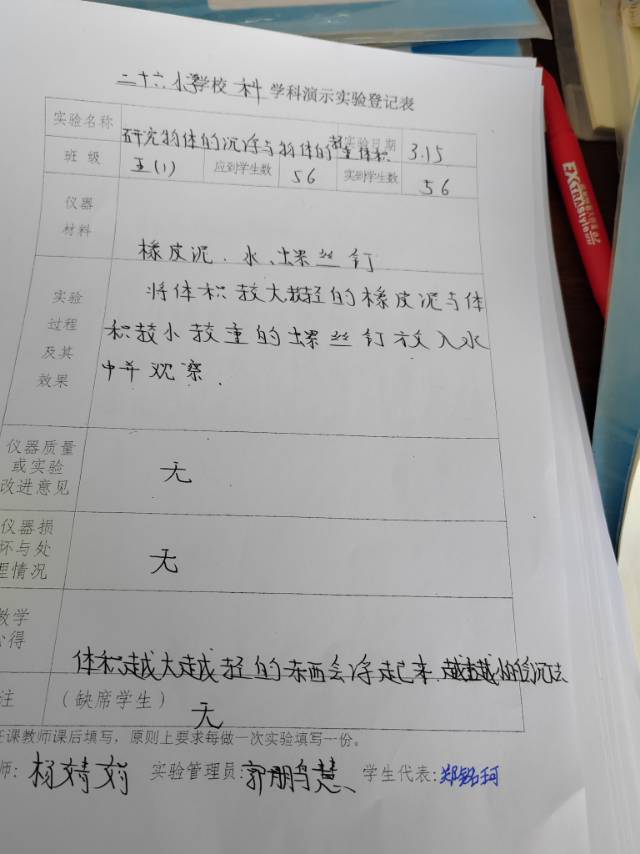 二十六小学校 科 学科演示实验登记表
实验名称 研究物体的沉浮与物体的轻重体积 实验日期 3.15
班 级 五(1) 应到学生数 56 实到学生数 56
仪器
材料
橡皮泥、水、螺丝钉
实验
过程
及其
效果
将体积较大较轻的橡皮泥与体
积较小较重的螺丝钉放入水
中并观察.
仪器质量
或实验
改进意见
无
仪器损
坏与处
理情况
无
教学
心得
体积越大越轻的东西会浮起来.越重越小的会沉
注 (缺席学生)
无
任课教师课后填写，原则上要求每做一次实验填写一份。
师: 杨婧娟 实验管理员: 郭鹏慧 学生代表: 郑铭珂
EXTRAStyle